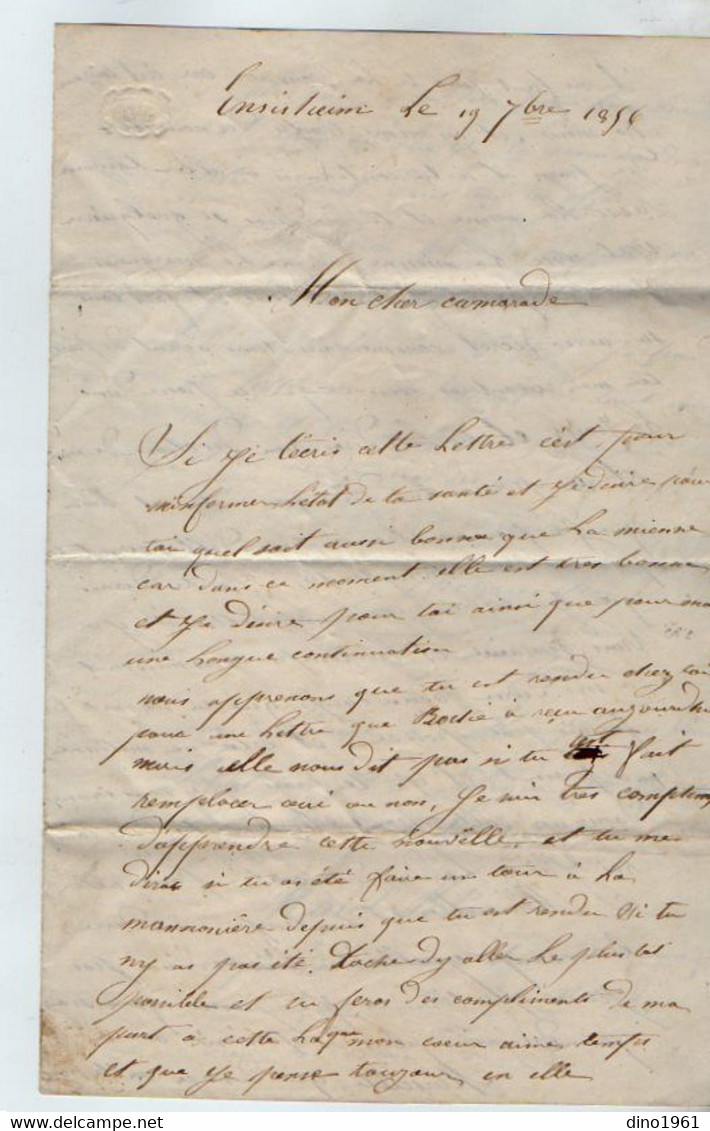 Ensisheim Le 19 7bre 1856
Mon cher camarade
Si Je t'ecris cette Lettre c'est pour
m'informer L'etat de ta santé et Je désire pour
toi quel soit aussi bonne que La mienne
car dans ce moment elle est tres bonne
et Je désire pour toi ainsi que pour moi
une Longue continuation
nous apprenons que tu est rendu chez toi
pour une Lettre que a reçu aujourdhui
mais elle nous dit pas si tu test fait
remplacer oui ou non, Je suis tres
d'apprendre cette nouvelle, et tu me
diras si tu as été faire un tour à La
mannonière depuis que tu est rendu Si tu
ny as pas été. Tache dy aller Le plus tot
possible et tu feras des compliments de ma
part a cette La que mon coeur aime temps
et que Je pense toujour en elle
dino1961